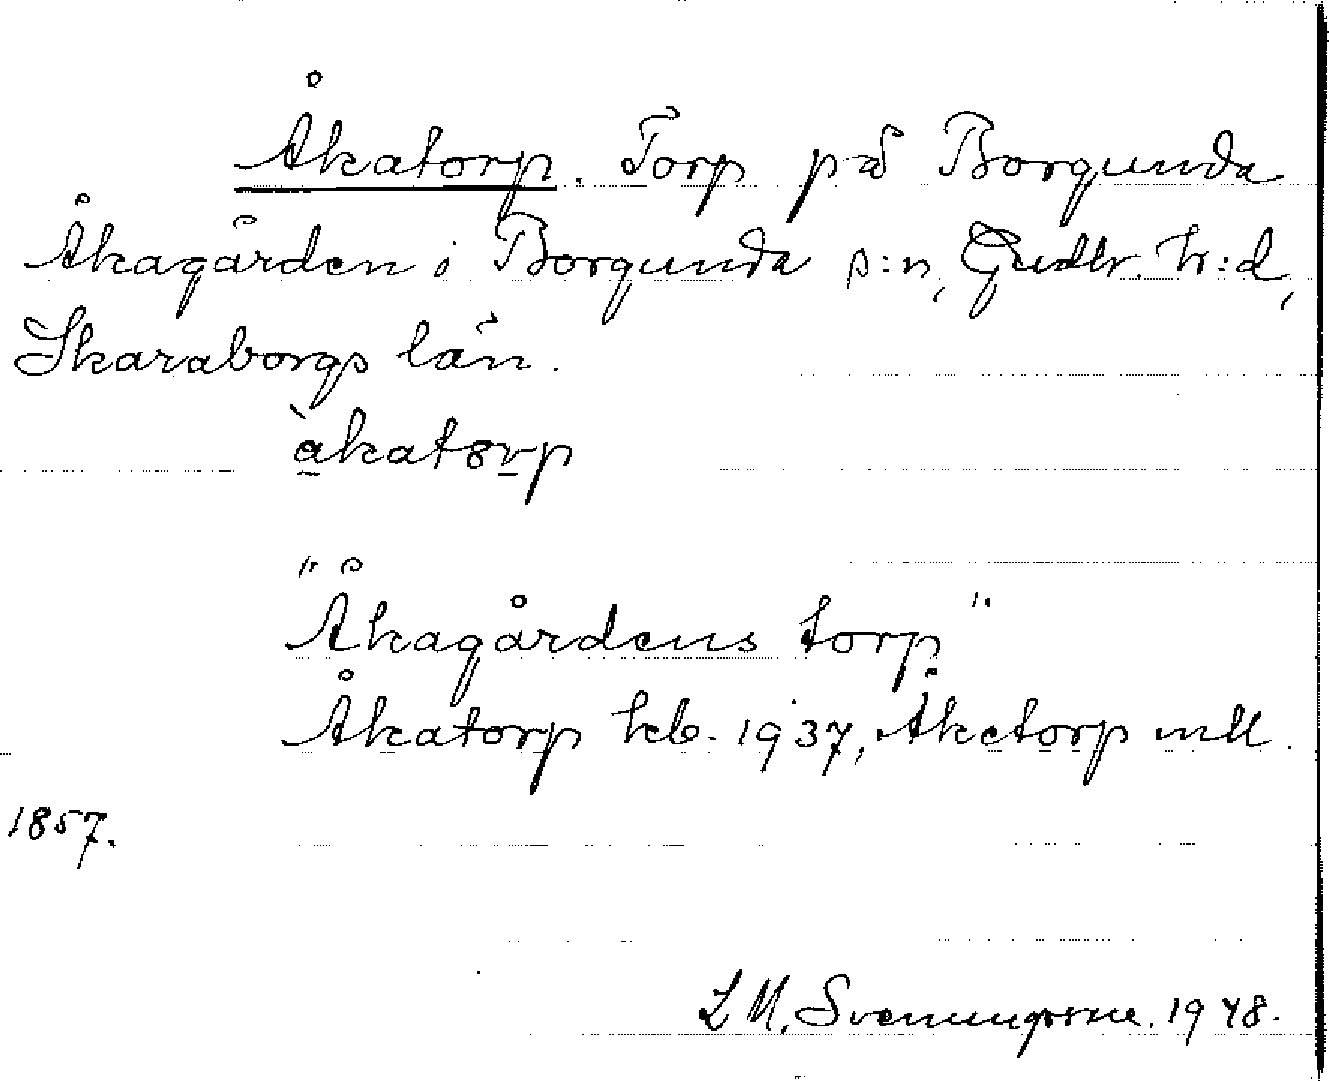 Åkatorp. Torp på Borgunda
Åkagården i Borgunda s:n, Gudh. h:d,
Skaraborgs län.
àkatorp
"Åkagårdens torp"
Åkatorp hcb. 1937, Åketorp
1857.
1948.